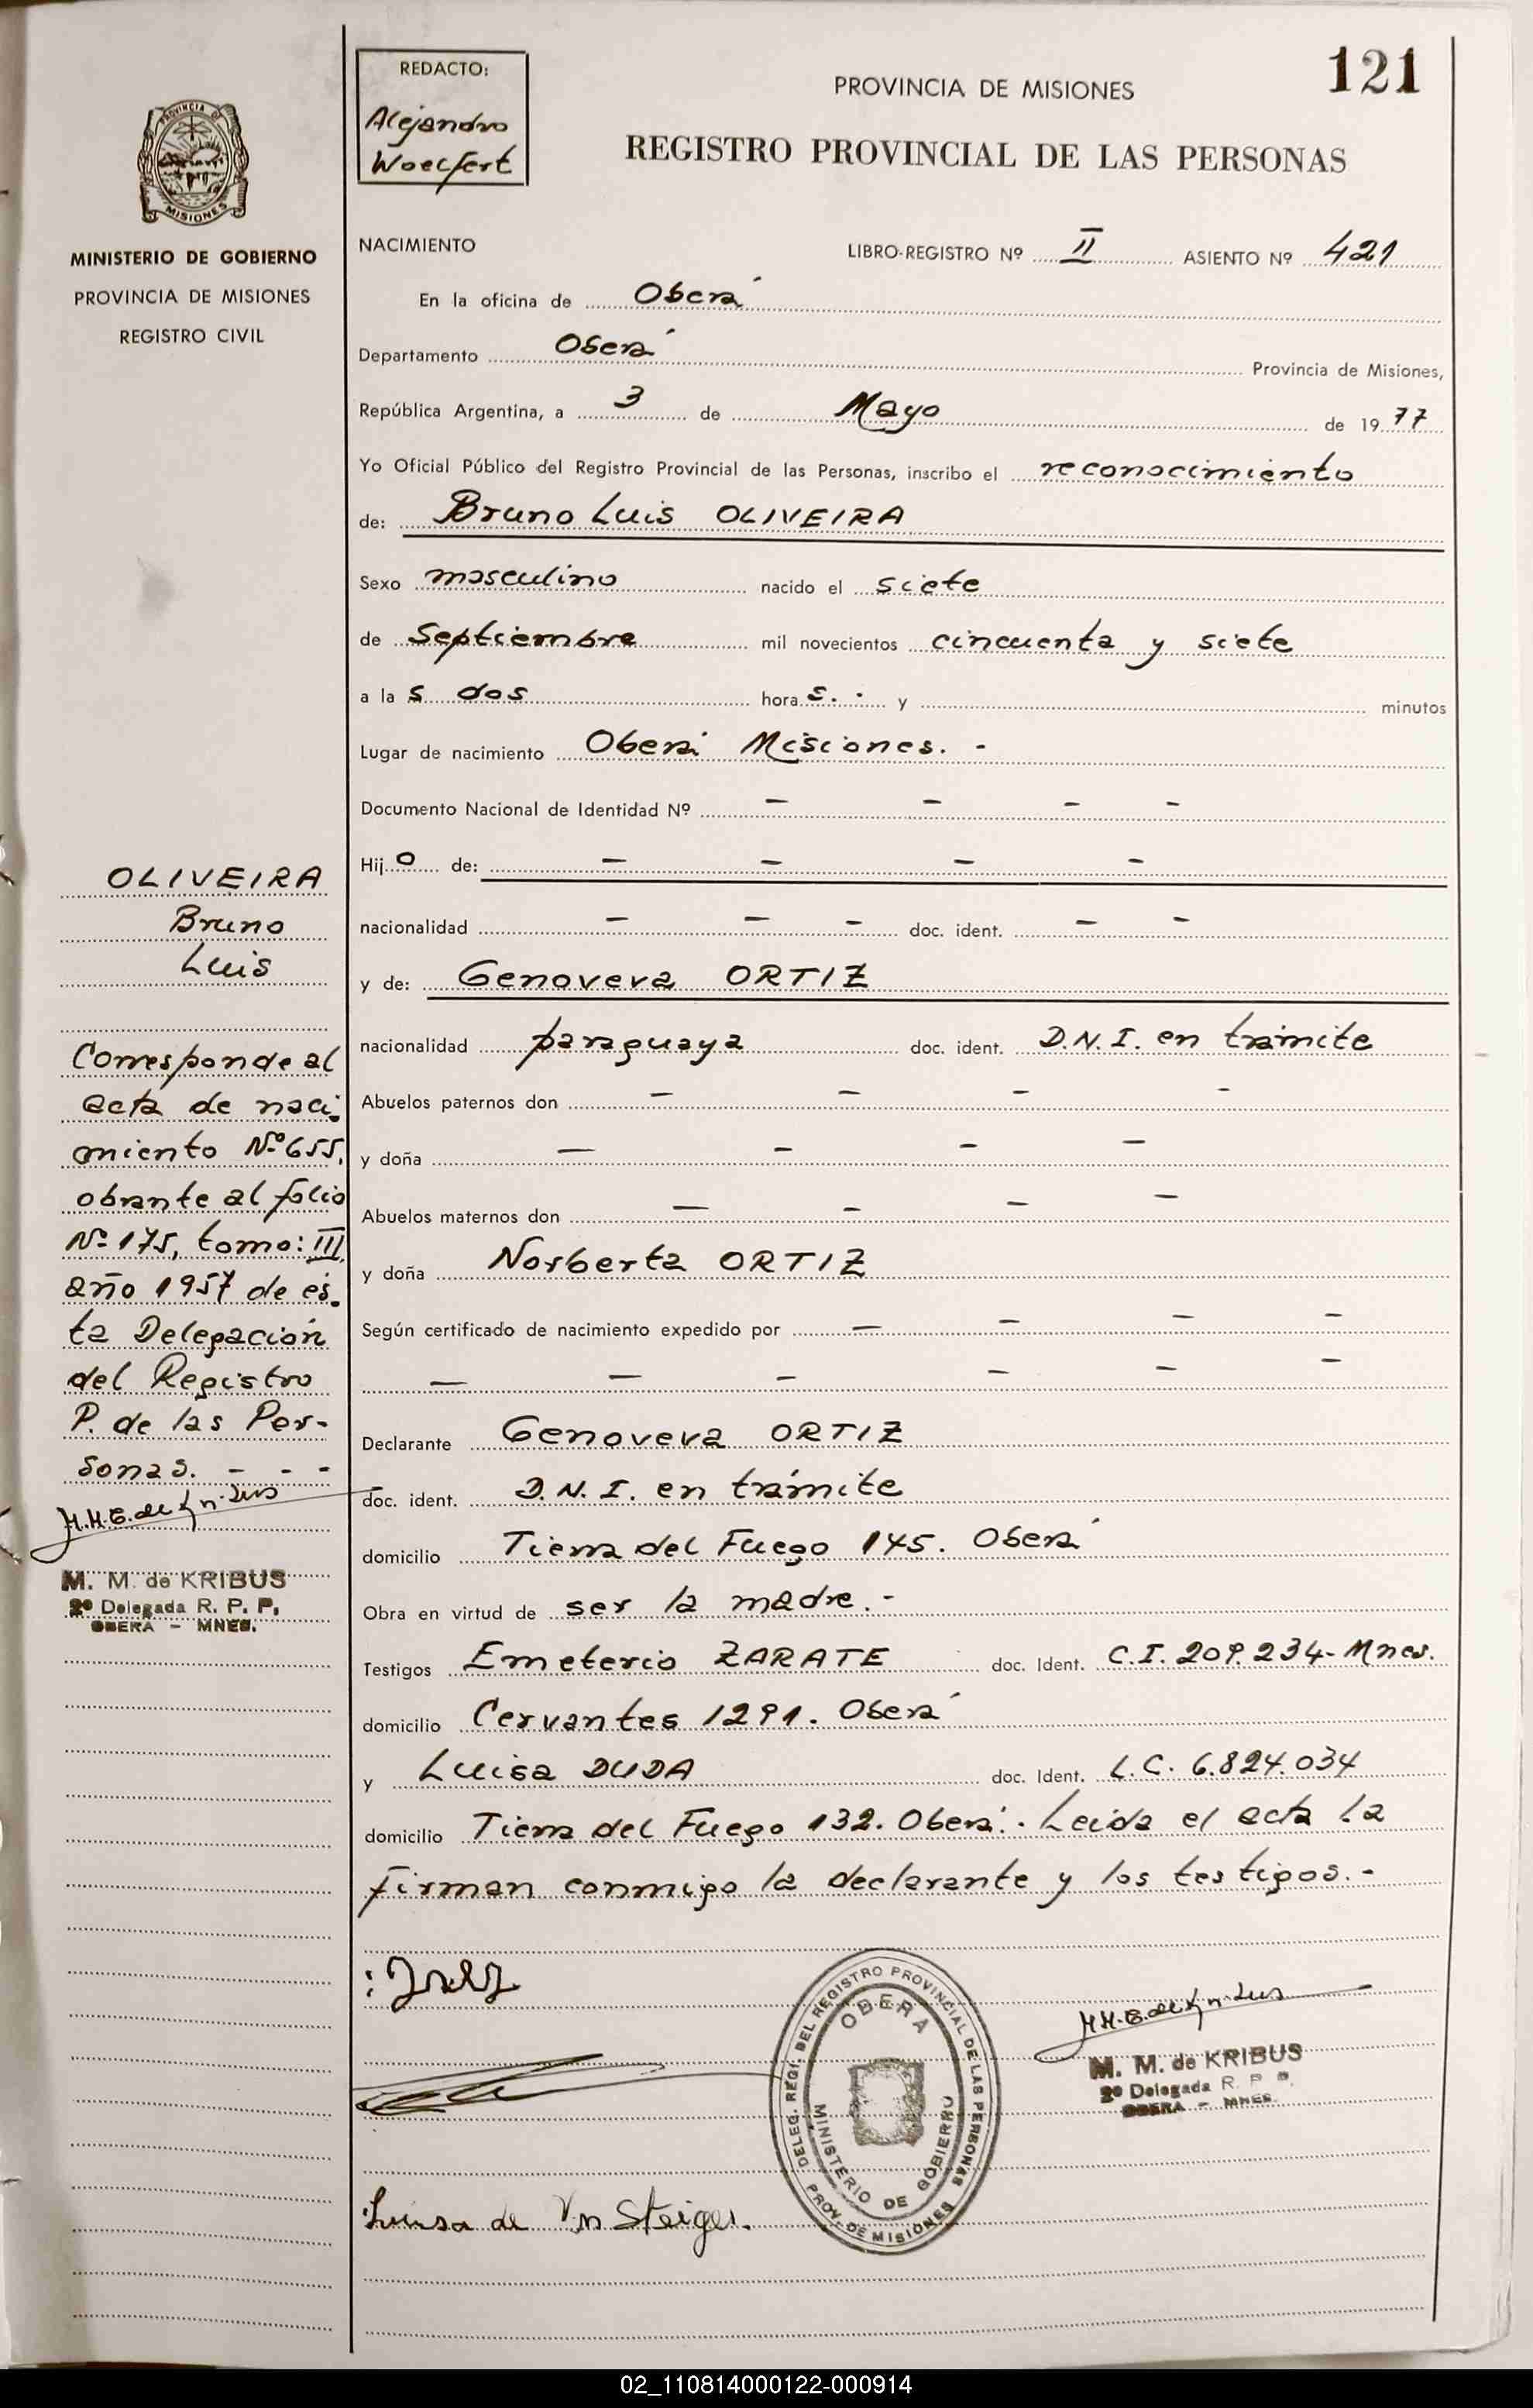 121
REDACTO:
Alejandro
Woelfert
PROVINCIA DE MISIONES
REGISTRO PROVINCIAL DE LAS PERSONAS
PROVINCIA DE
MISIONES
MINISTERIO DE GOBIERNO
PROVINCIA DE MISIONES
REGISTRO CIVIL
NACIMIENTO
LIBRO-REGISTRO Nº II ASIENTO Nº 421
En la oficina de Oberá
Departamento Oberá Provincia de Misiones,
República Argentina, a 3 de Mayo de 1977
Yo Oficial Público del Registro Provincial de las Personas, inscribo el reconocimiento
de: Bruno Luis OLIVEIRA
Sexo masculino nacido el siete
de Septiembre mil novecientos cincuenta y siete
a la s dos hora s. - y minutos
Lugar de nacimiento Oberá Misiones. -
Documento Nacional de Identidad Nº - - - -
Hijo de: - - - -
nacionalidad - - - doc. ident. - -
y de: Genoveva ORTIZ
nacionalidad paraguaya doc. ident. D.N.I. en trámite
Abuelos paternos don - - - -
y doña - - - -
Abuelos maternos don - - - -
y doña Norberta ORTIZ
Según certificado de nacimiento expedido por - - - -
- - - - - -
Declarante Genoveva ORTIZ
doc. ident. D.N.I. en trámite
domicilio Tierra del Fuego 145. Oberá
Obra en virtud de ser la madre. -
Testigos Emeterio ZARATE doc. Ident. C.I. 209.234-Mnes.
domicilio Cervantes 1291. Oberá
y Luisa DUDA doc. Ident. L.C. 6.824.034
domicilio Tierra del Fuego 132. Oberá. - Leída el acta la
firman conmigo la declarante y los testigos. -
OLIVEIRA
Bruno
Luis
Corresponde al
acta de naci-
miento Nº 655,
obrante al folio
Nº 175, tomo: III,
año 1957 de es-
ta Delegación
del Registro
P. de las Per-
sonas. - - -
M. M. de KRIBUS
2º Delegada R. P. P.
OBERA - MNES.
DELEG. REGI. DEL REGISTRO PROVINCIAL DE LAS PERSONAS
OBERA
MINISTERIO DE GOBIERNO
PROV. DE MISIONES
M. M. de KRIBUS
2º Delegada R. P. P.
OBERA - MNES.
Luisa de Vn Steiger.
02_110814000122-000914